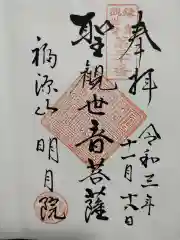 奉拝
令和三年
十一月十六日
聖観世音菩薩
福源山
明月院